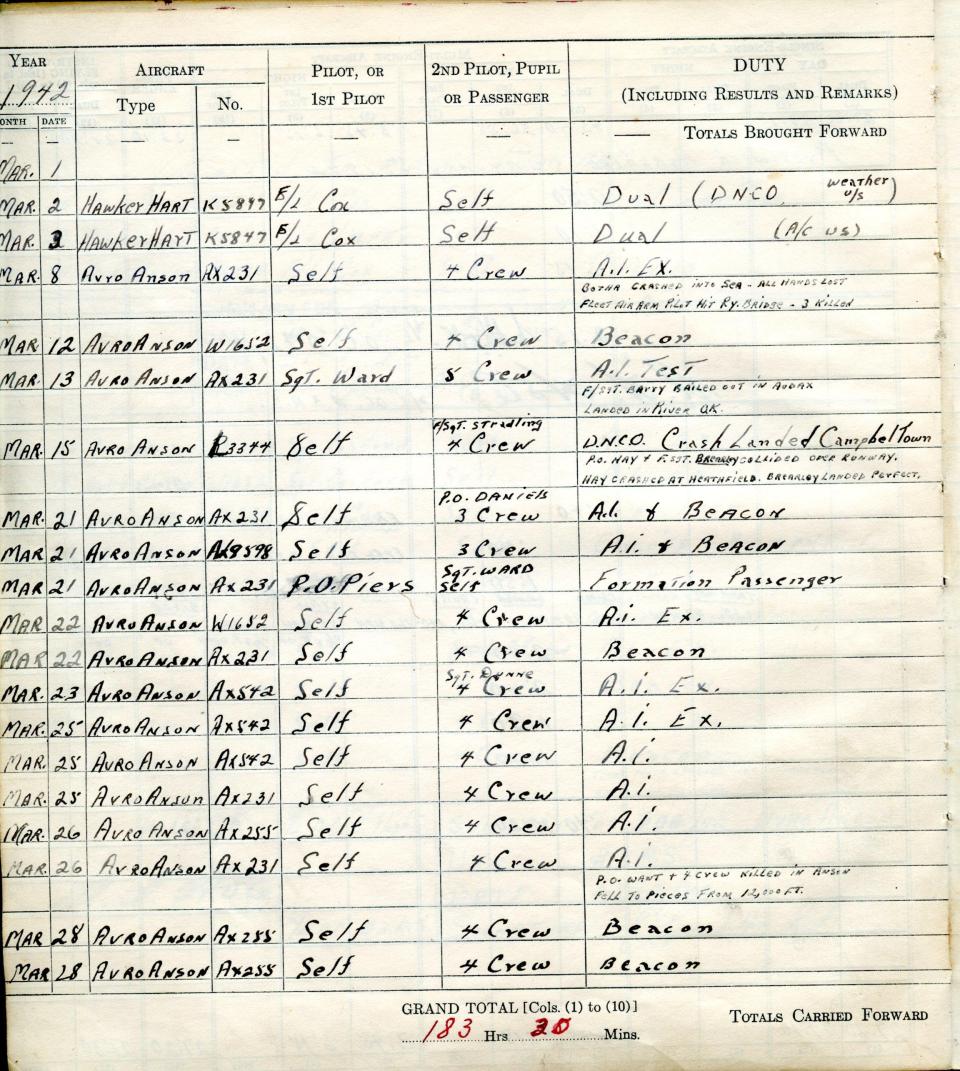 YEAR AIRCRAFT PILOT, OR 2ND PILOT, PUPIL DUTY
1942 Type No. 1ST PILOT OR PASSENGER (INCLUDING RESULTS AND REMARKS)
ONTH DATE
— — — — — — —— TOTALS BROUGHT FORWARD
MAR. 1
MAR. 2 HAWKER HART K5897 F/L Cox Self Dual (DNCO weather u/s)
MAR. 3 HAWKER HART K5847 F/L Cox Self Dual (A/c us)
MAR 8 Avro Anson AX231 Self 4 Crew A.I. EX.
BOTHA CRASHED INTO SEA - ALL HANDS LOST
FLEET AIR ARM PILOT HIT RY. BRIDGE - 3 KILLED
MAR 12 AVRO ANSON W1652 Self 4 Crew Beacon
MAR. 13 AVRO ANSON AX231 SgT. Ward 5 Crew A.I. TEST
F/SGT. BARRY BAILED OUT IN AUDAX
LANDED IN RIVER OK.
F/SgT. Stradling
MAR. 15 AVRO ANSON R3344 Self 4 Crew D.N.C.O. Crash Landed CampbelTown
P.O. HAY + F.SGT. BREARLEY COLLIDED OVER RUNWAY.
HAY CRASHED AT HEATHFIELD. BREARLEY LANDED PERFECT.
P.O. DANIELS
MAR. 21 AVRO ANSON AX231 Self 3 Crew A.I. & BEACON
MAR. 21 AVRO ANSON 9598 Self 3 Crew A.I. & BEACON
SgT. WARD
MAR 21 AVRO ANSON AX231 P.O. Piers Self Formation Passenger
MAR 22 AVRO ANSON W1652 Self 4 Crew A.I. Ex.
MAR 22 AVRO ANSON AX231 Self 4 Crew Beacon
SgT. Dunne
MAR. 23 AVRO ANSON AX542 Self 4 Crew A.I. Ex.
MAR. 25 AVRO ANSON AX542 Self 4 Crew A.I. Ex.
MAR. 25 AVRO ANSON AX542 Self 4 Crew A.I.
MAR. 25 AVRO ANSON AX231 Self 4 Crew A.I.
MAR. 26 AVRO ANSON AX255 Self 4 Crew A.I.
MAR. 26 AVRO ANSON AX231 Self 4 Crew A.I.
P.O. WANT + 4 CREW KILLED IN ANSON
FELL TO PIECES FROM 12,000 FT.
MAR 28 AVRO ANSON AX255 Self 4 Crew Beacon
MAR 28 AVRO ANSON AX255 Self 4 Crew Beacon
GRAND TOTAL [Cols. (1) to (10)] TOTALS CARRIED FORWARD
183 Hrs 20 Mins.